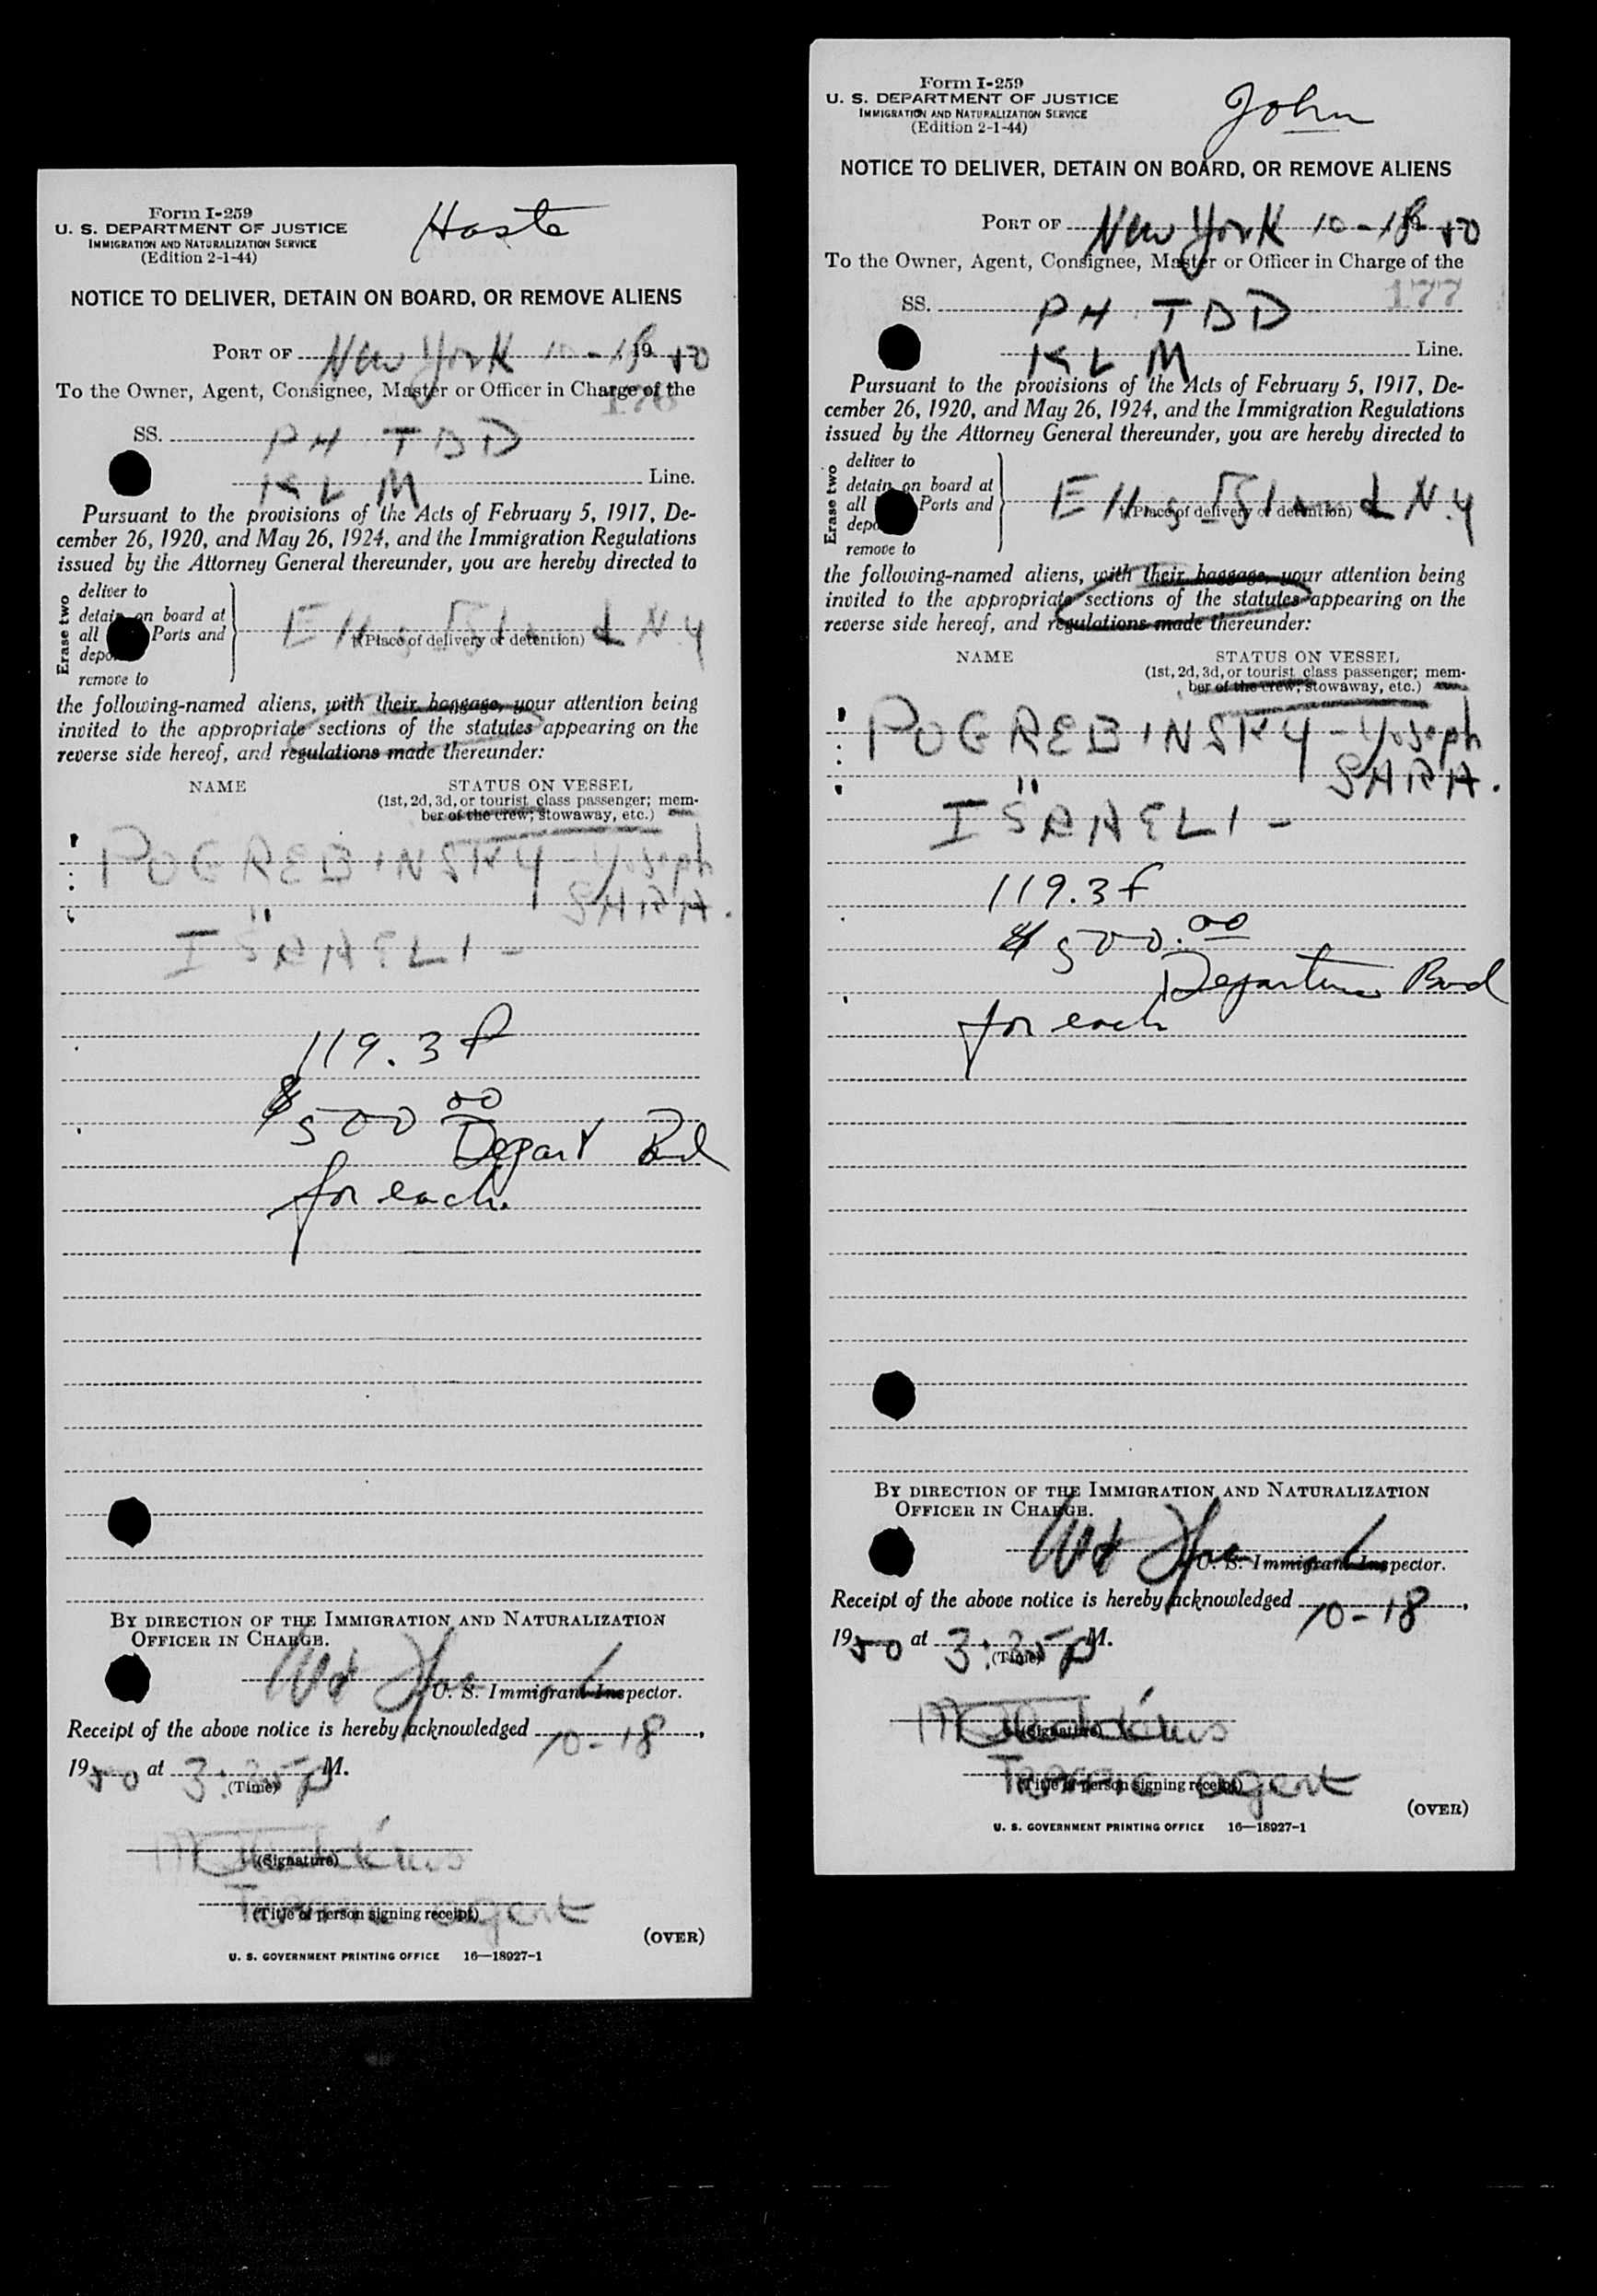 Form I-259
U. S. DEPARTMENT OF JUSTICE
IMMIGRATION AND NATURALIZATION SERVICE
(Edition 2-1-44)
Haste
NOTICE TO DELIVER, DETAIN ON BOARD, OR REMOVE ALIENS
PORT OF New York 10-18 1950
To the Owner, Agent, Consignee, Master or Officer in Charge of the
176
SS. PH TBD
KLM Line.
Pursuant to the provisions of the Acts of February 5, 1917, De-
cember 26, 1920, and May 26, 1924, and the Immigration Regulations
issued by the Attorney General thereunder, you are hereby directed to
Erase two
deliver to
detain on board at
all Ports and
remove to
Ellis Island N.Y
(Place of delivery or detention)
the following-named aliens, with their baggage, your attention being
invited to the appropriate sections of the statutes appearing on the
reverse side hereof, and regulations made thereunder:
NAME STATUS ON VESSEL
(1st, 2d, 3d, or tourist class passenger; mem-
ber of the crew; stowaway, etc.)
POGREBINSKY - Yoseph
" SARA.
ISRAELI -
119.3f
$500 00
Depart Bnd
for each.
BY DIRECTION OF THE IMMIGRATION AND NATURALIZATION
OFFICER IN CHARGE.
U. S. Immigrant Inspector.
Receipt of the above notice is hereby acknowledged 10-18,
1950 at 3:35 P M.
(Time)
(Signature)
agent
(Title of person signing receipt)
(OVER)
U. S. GOVERNMENT PRINTING OFFICE 16—18927-1
Form I-259
U. S. DEPARTMENT OF JUSTICE
IMMIGRATION AND NATURALIZATION SERVICE
(Edition 2-1-44)
John
NOTICE TO DELIVER, DETAIN ON BOARD, OR REMOVE ALIENS
PORT OF New York 10-18 1950
To the Owner, Agent, Consignee, Master or Officer in Charge of the
177
SS. PH TBD
KLM Line.
Pursuant to the provisions of the Acts of February 5, 1917, De-
cember 26, 1920, and May 26, 1924, and the Immigration Regulations
issued by the Attorney General thereunder, you are hereby directed to
Erase two
deliver to
detain on board at
all Ports and
remove to
Ellis Island N.Y
(Place of delivery or detention)
the following-named aliens, with their baggage, your attention being
invited to the appropriate sections of the statutes appearing on the
reverse side hereof, and regulations made thereunder:
NAME STATUS ON VESSEL
(1st, 2d, 3d, or tourist class passenger; mem-
ber of the crew; stowaway, etc.)
POGREBINSKY - Yoseph
" SARA.
ISRAELI -
119.3f
$500.00
Departure Bnd
for each
BY DIRECTION OF THE IMMIGRATION AND NATURALIZATION
OFFICER IN CHARGE.
U. S. Immigrant Inspector.
Receipt of the above notice is hereby acknowledged 10-18,
1950 at 3:35 P M.
(Time)
(Signature)
agent
(Title of person signing receipt)
(OVER)
U. S. GOVERNMENT PRINTING OFFICE 16—18927-1